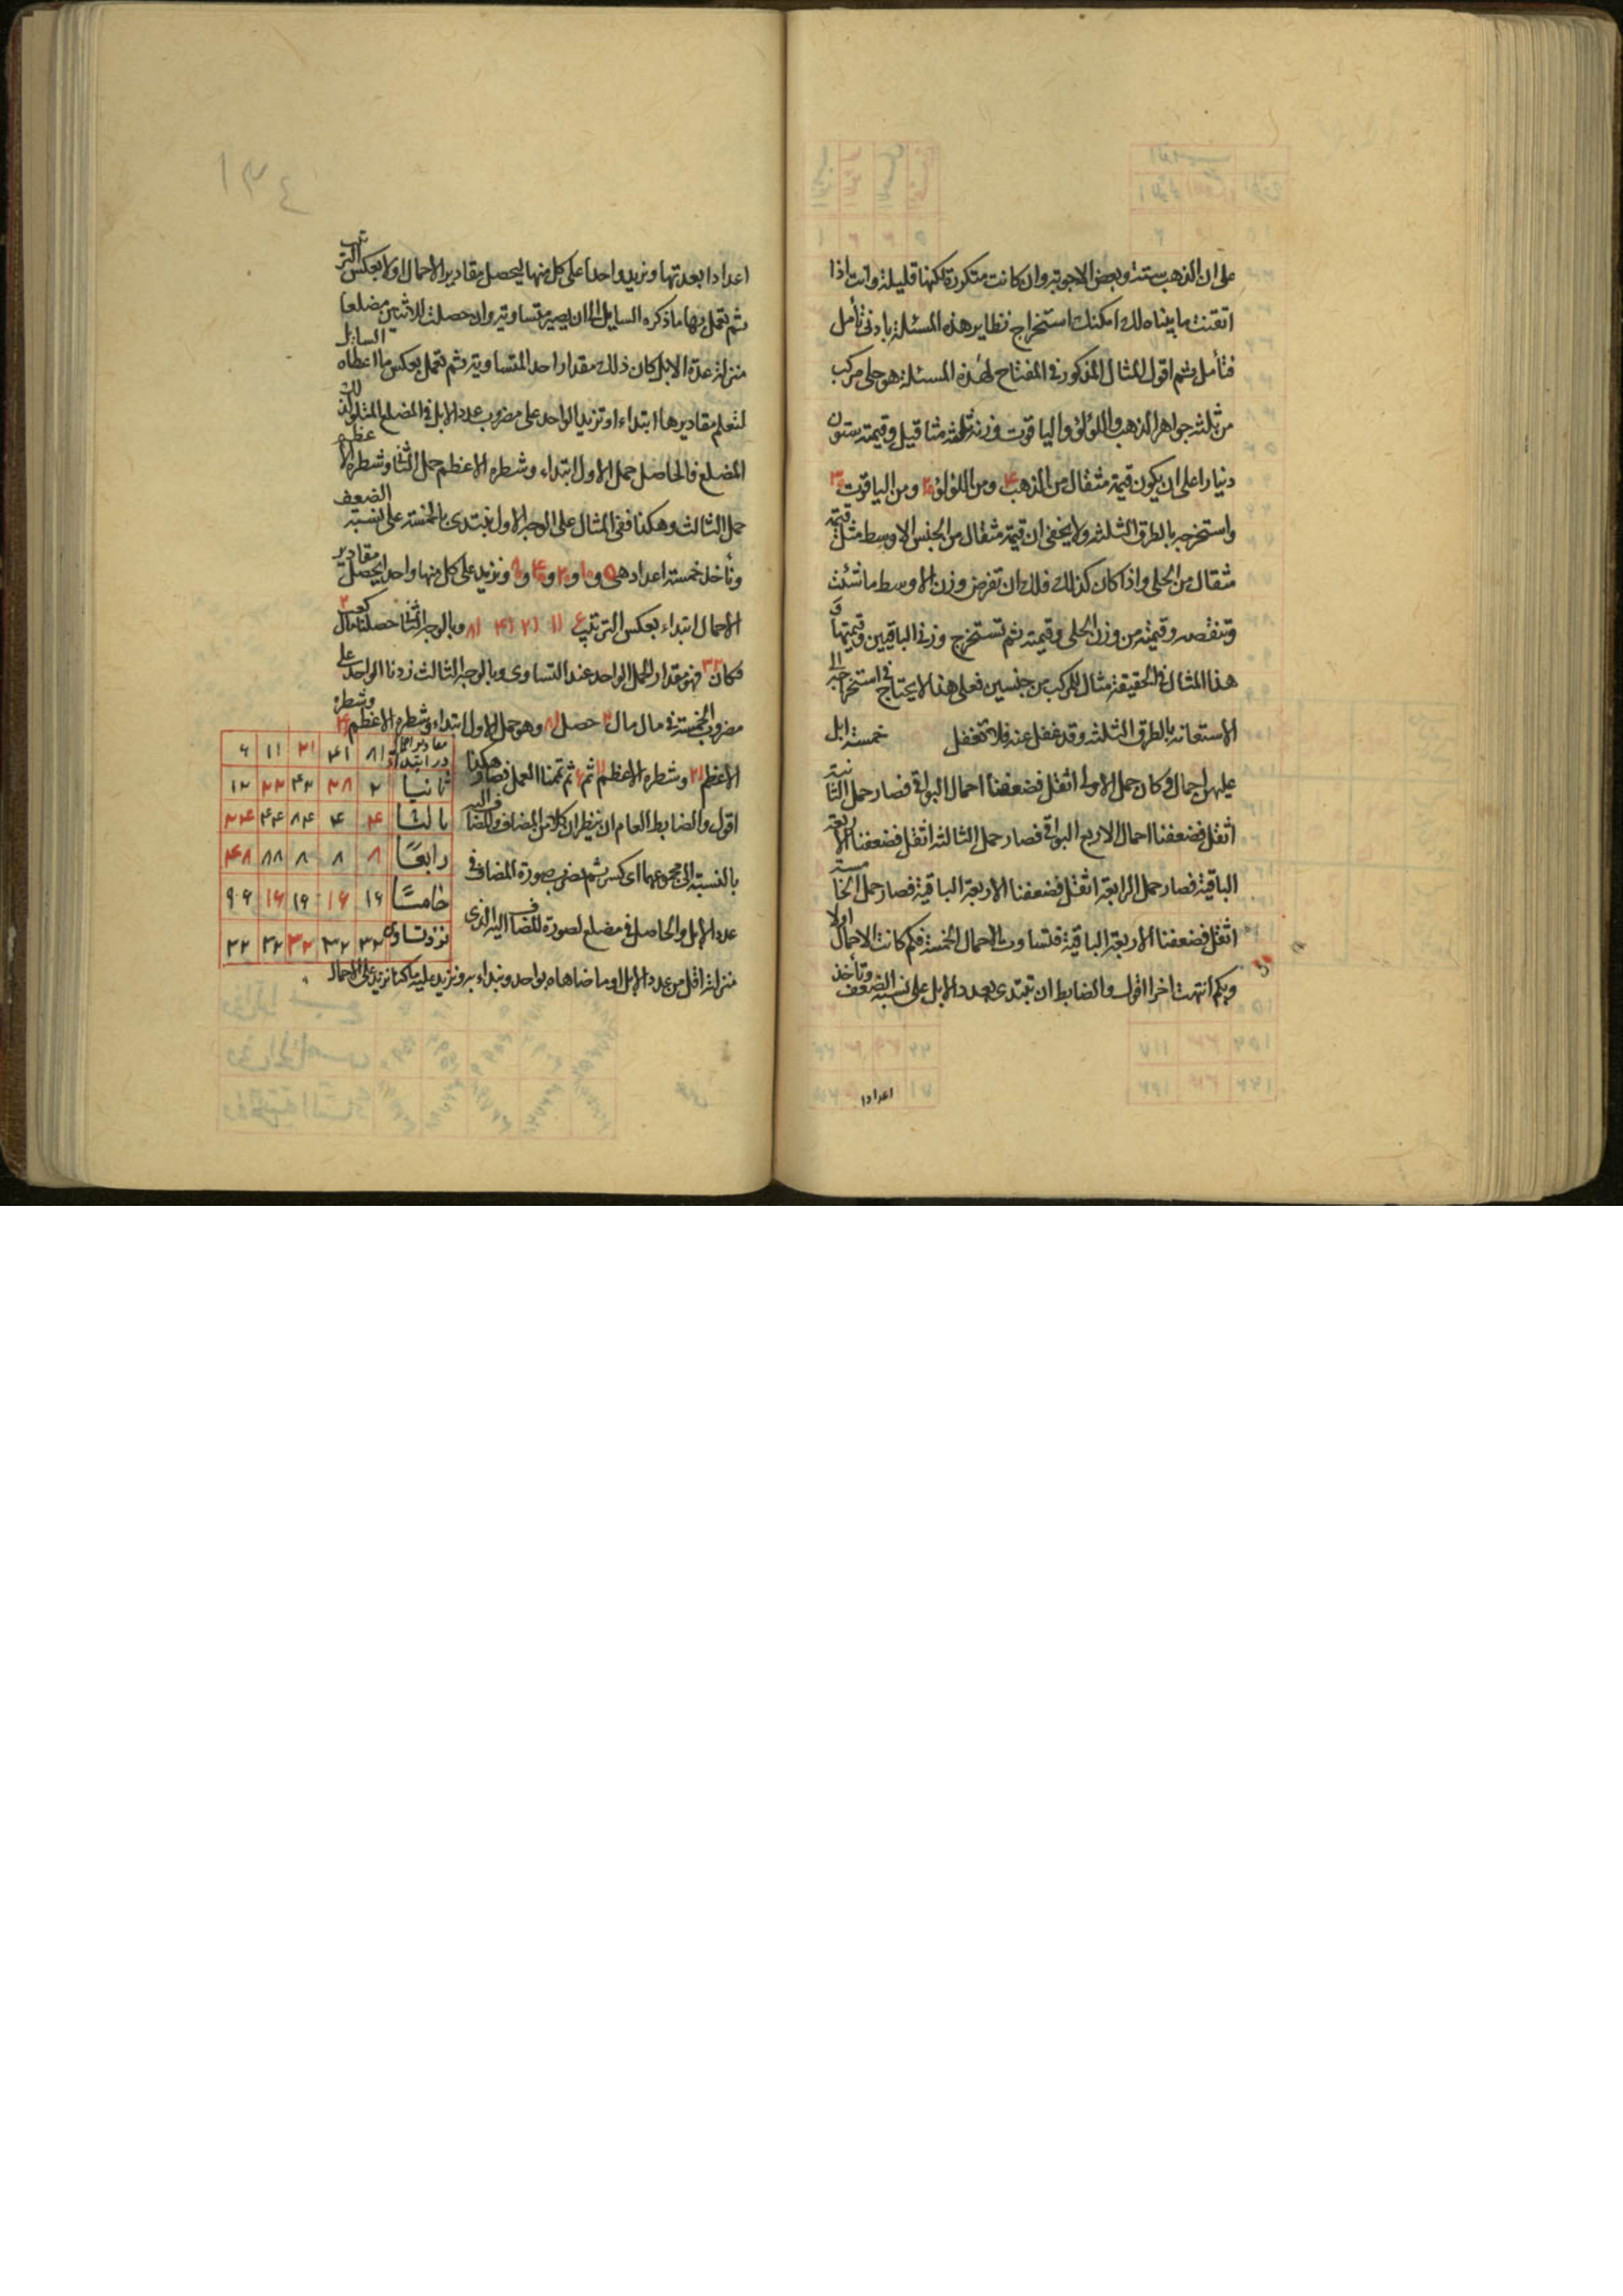 على ان الذهب ستة وبعض الاجوبة وان كانت متكررة لكنها قليلة وانت اذا
اتقنت ما بيناه لك امكنك استخراج نظاير هذه المسئلة بادنى تأمل
فتأمل ثم اقول المثال المذكور فى المفتاح لهذه المسئلة هو حلى مركب
من ثلثة جواهر الذهب واللؤلؤ والياقوت وزنه ثلثة مثاقيل وقيمته ستون
دينارا على ان يكون قيمة مثقال من الذهب ۴ ومن اللؤلؤ ۲۰ ومن الياقوت ۳۰
واستخرجه بالطرق الثلثة ولا يخفى ان قيمة مثقال من الجنس الاوسط مثل قيمة
مثقال من الحلى واذا كان كذلك فلك ان تفرض وزن الاوسط ما شئت
وتنقصه وقيمته من وزن الحلى وقيمته ثم تستخرج وزنى الباقيين وقيمتهما و
هذا المثال فى الحقيقة مثال للمركب من جنسين فعلى هذا لا يحتاج فى استخراجه الى
الاستعانة بالطرق الثلثة وقد غفل عنه فلا تغفل خمسة ابل
عليهن احمال وكان حمل الاولى اثقل فضعفنا احمال البواقى فصار حمل الثانية
اثقل فضعفنا احمال الاربع البواقى فصار حمل الثالثة اثقل فضعفنا الاربعة
الباقية فصار حمل الرابعة اثقل فضعفنا الاربعة الباقية فصار حمل الخامسة
اثقل فضعفنا الاربعة الباقية فتساوت الاحمال الخمسة فكم كانت الاحمال اولا
وبكم انتهت اخرا اقول والضابط ان تبتدى بعدد الابل على نسبة الضعف وتأخذ
اعدادا
اعدادا بعدتها ونزيد واحدا على كل منها ليحصل مقادير الاحمال اولا بعكس الترتيب
ثم تعمل بها ما ذكره السايل الى ان يصير متساوية وان حصلت للاثنين مضلعا
منزلته عدة الابل كان ذلك مقدار احد المتساوية ثم تعمل بعكس ما اعطاه السائل
لتعلم مقاديرها ابتداء او تزيد الواحد على مضروب عدد الابل فى المضلع المتلو لذلك
المضلع فالحاصل حمل الاول ابتداء وشطره الاعظم حمل الثانى وشطره الاعظم
حمل الثالث وهكذا ففى المثال على الوجه الاول نبتدى بالخمسة على نسبة الضعف
ونأخذ خمسة اعداد هى ۵ و ۱۰ و ۲۰ و ۴۰ و ۸۰ ونزيد على كل منها واحد ليحصل مقادير
الاحمال ابتداء بعكس الترتيب ۶ ۱۱ ۲۱ ۴۱ ۸۱ وبالوجه الثانى حصلنا مال كعب ۲
فكان ۳۲ فهو مقدار الحمل الواحد عند التساوى وبالوجه الثالث زدنا الواحد على
مضروب الخمسة فى مال مال ۲ حصل ۸۱ وهو حمل الاول ابتداء وشطره الاعظم ۴۱ وشطره
الاعظم ۲۱ وشطره الاعظم ۱۱ ثم ۶ ثم تممنا العمل فصار هكذا
اقول والضابط العام ان ينظر ان كلا من المضاف والمضاف اليه
بالنسبة الى مجموعهما اى كسر ثم نضرب صورة المضاف فى
عدد الابل والحاصل فى مضلع لصورة المضاف اليه الذى
منزلته اقل من عدد الابل اوما ضاهاه بواحد ونبداء به ونزيد عليه ما كنا نزيد على الاحمال
مقادير احمال در ابتداء ۸۱ ۴۱ ۲۱ ۱۱ ۶
ثانيا ۲ ۸۲ ۴۲ ۲۲ ۱۲
ثالثا ۴ ۴ ۸۴ ۴۴ ۲۴
رابعًا ۸ ۸ ۸ ۸۸ ۴۸
خامسًا ۱۶ ۱۶ ۱۶ ۱۶ ۹۶
نزد تساوى ۳۲ ۳۲ ۳۲ ۳۲ ۳۲